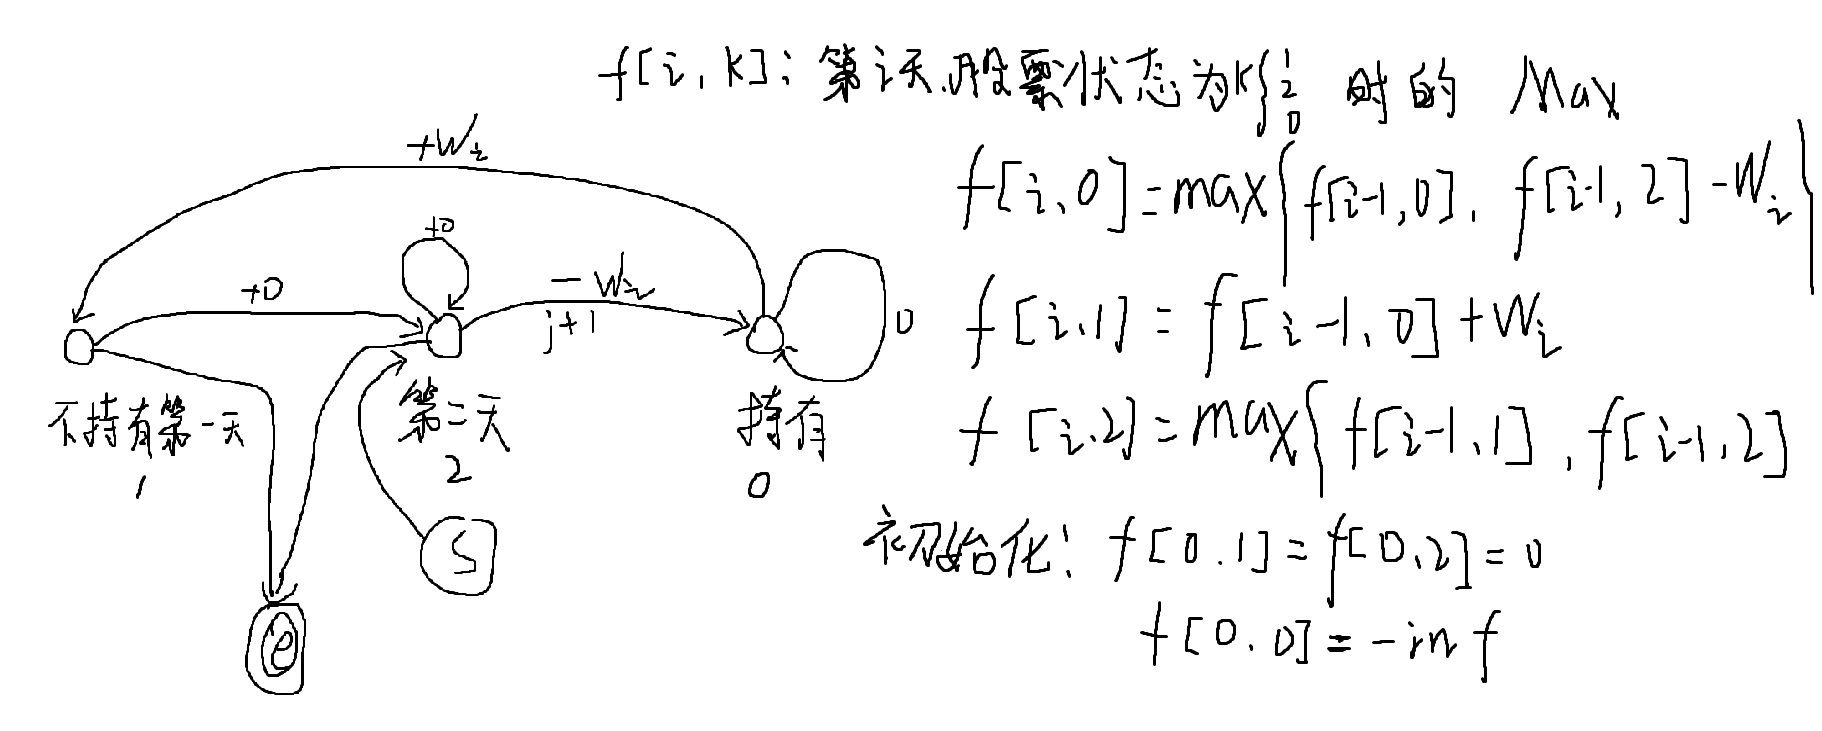 f[i,k]:第i天,股票状态为k{1 2 0 时的 Max
f[i,0]=max{f[i-1,0],f[i-1,2]-Wi}
f[i,1]=f[i-1,0]+Wi
f[i,2]=max{f[i-1,1],f[i-1,2]
初始化:f[0,1]=f[0,2]=0
f[0,0]=-inf
+Wi
+0
+0
-Wi
j+1
0
不持有第一天
1
第二天
2
持有
0
S
e